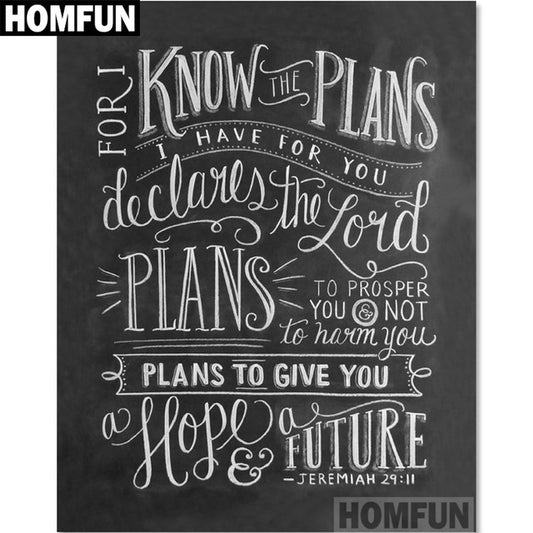 HOMFUN
FOR I KNOW THE PLANS
I HAVE FOR YOU
declares the Lord
PLANS
TO PROSPER
YOU & NOT
to harm you
PLANS TO GIVE YOU
a Hope & a
FUTURE
—JEREMIAH 29:11
HOMFUN